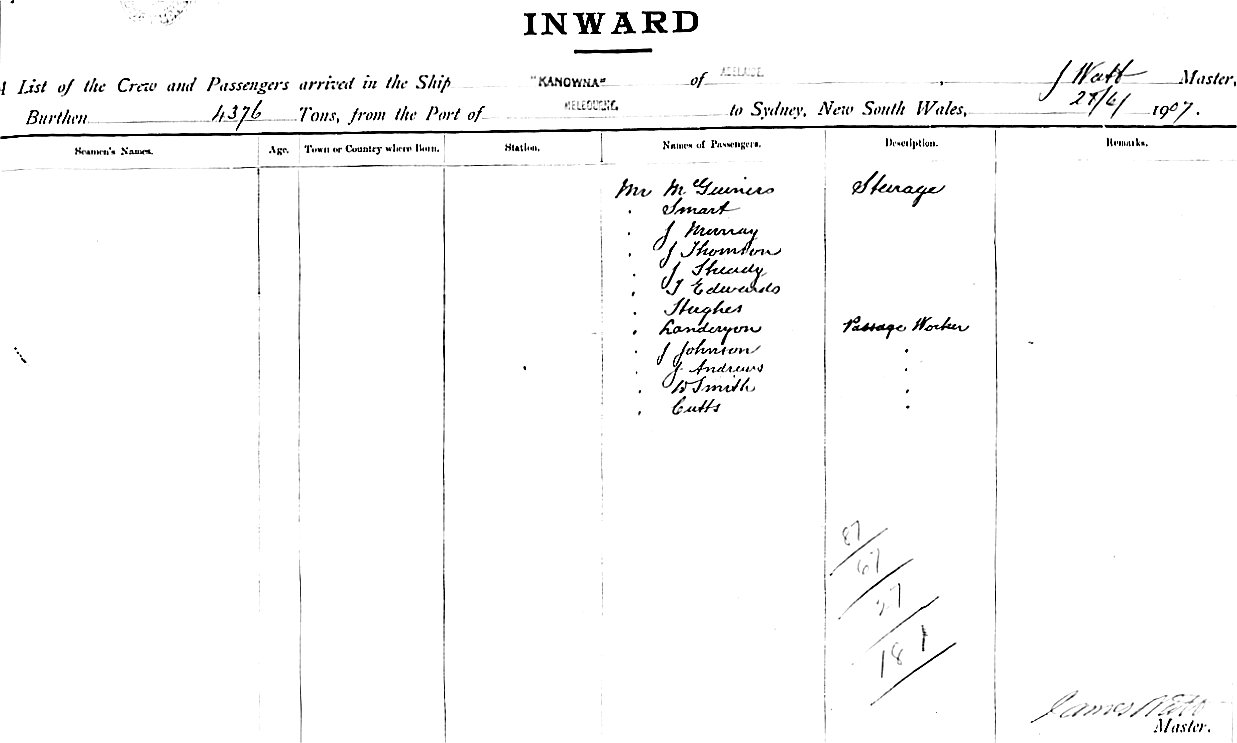 INWARD
A List of the Crew and Passengers arrived in the Ship "KANOWNA" of ADELAIDE, J Watt Master,
Burthen 4376 Tons, from the Port of MELBOURNE to Sydney, New South Wales, 27/6/ 1907.
Seamen's Names. Age. Town or Country where Born. Station. Names of Passengers. Description. Remarks.
Mr McGuiness Steerage
" Smart
" J Murray
" J Thomson
" J
" T Edwards
" Hughes
" Passage Worker
" J Johnson "
" J Andrews "
" W Smith "
" Cutts "
87
67
27
181
James Watt
Master.